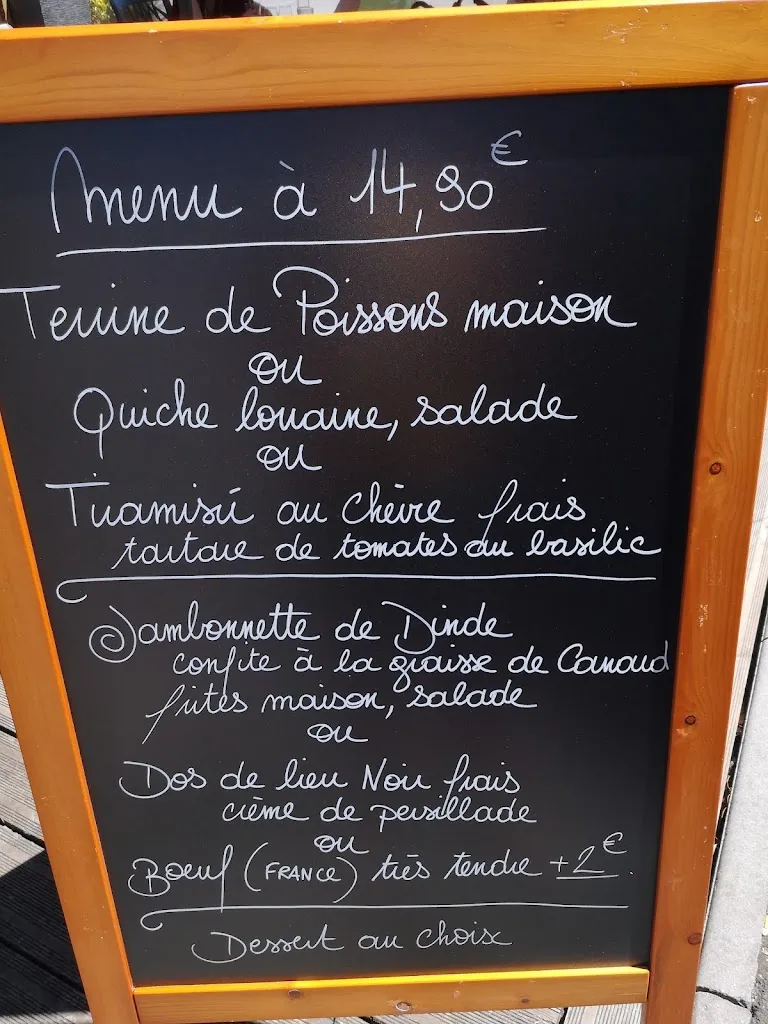 Menu à 14,90€
Terrine de Poissons maison
ou
Quiche lorraine, salade
ou
Tiramisú au chèvre frais
tartare de tomates au basilic
Jambonnette de Dinde
confite à la graisse de Canard
frites maison, salade
ou
Dos de lieu Noir frais
crème de persillade
ou
Bœuf (FRANCE) très tendre +2€.
Dessert au choix